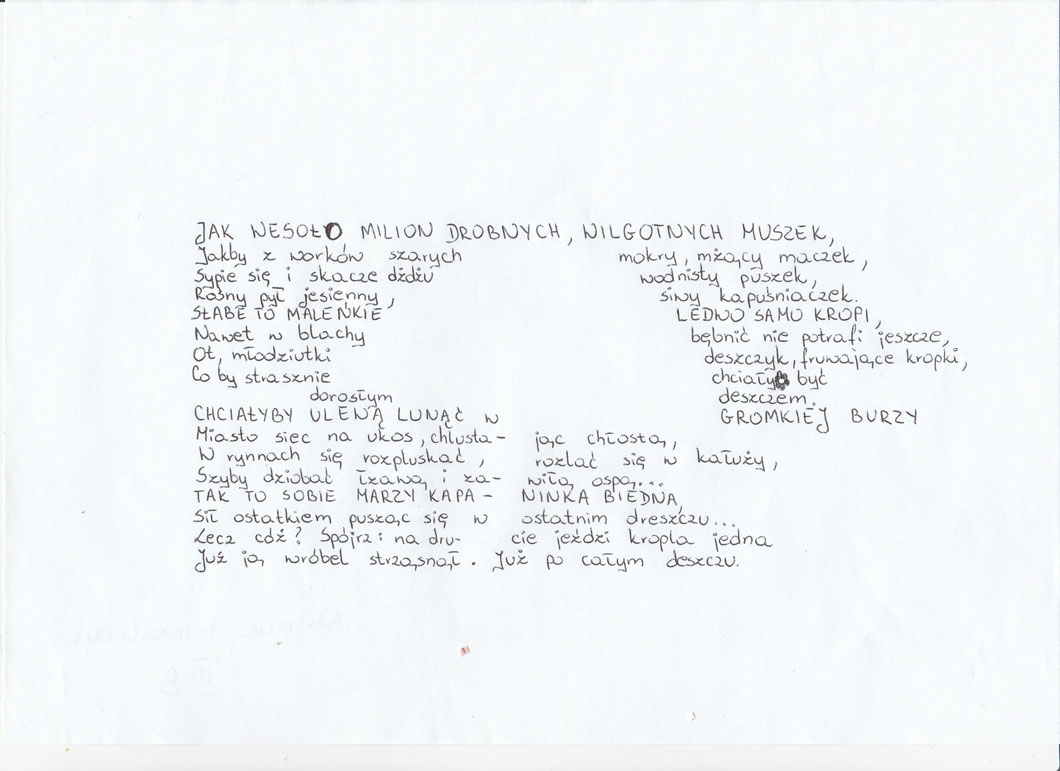 JAK WESOŁO MILION DROBNYCH, WILGOTNYCH MUSZEK,
Jakby z worków szarych mokry, mżący maczek,
Sypie się i skacze dżdżu wodnisty puszek,
Rośny pył jesienny, siwy kapuśniaczek.
SŁABE TO MALEŃKIE LEDWO SAMO KROPI,
Nawet w blachy bębnić nie potrafi jeszcze,
Ot, młodziutki deszczyk, fruwające kropki,
Co by strasznie chciały być
dorosłym deszczem.
CHCIAŁYBY ULEWĄ LUNĄĆ W GROMKIEJ BURZY
Miasto siec na ukos, chlusta- jąc chłostą,
W rynnach się rozpluskać, rozlać się w kałuży,
Szyby dziobać łzawą i za- wiłą ospą...
TAK TO SOBIE MARZY KAPA- NINKA BIEDNA,
Sił ostatkiem pusząc się w ostatnim dreszczu...
Lecz cóż? Spójrz: na dru- cie jeździ kropla jedna
Już ją wróbel strząsnął. Już po całym deszczu.